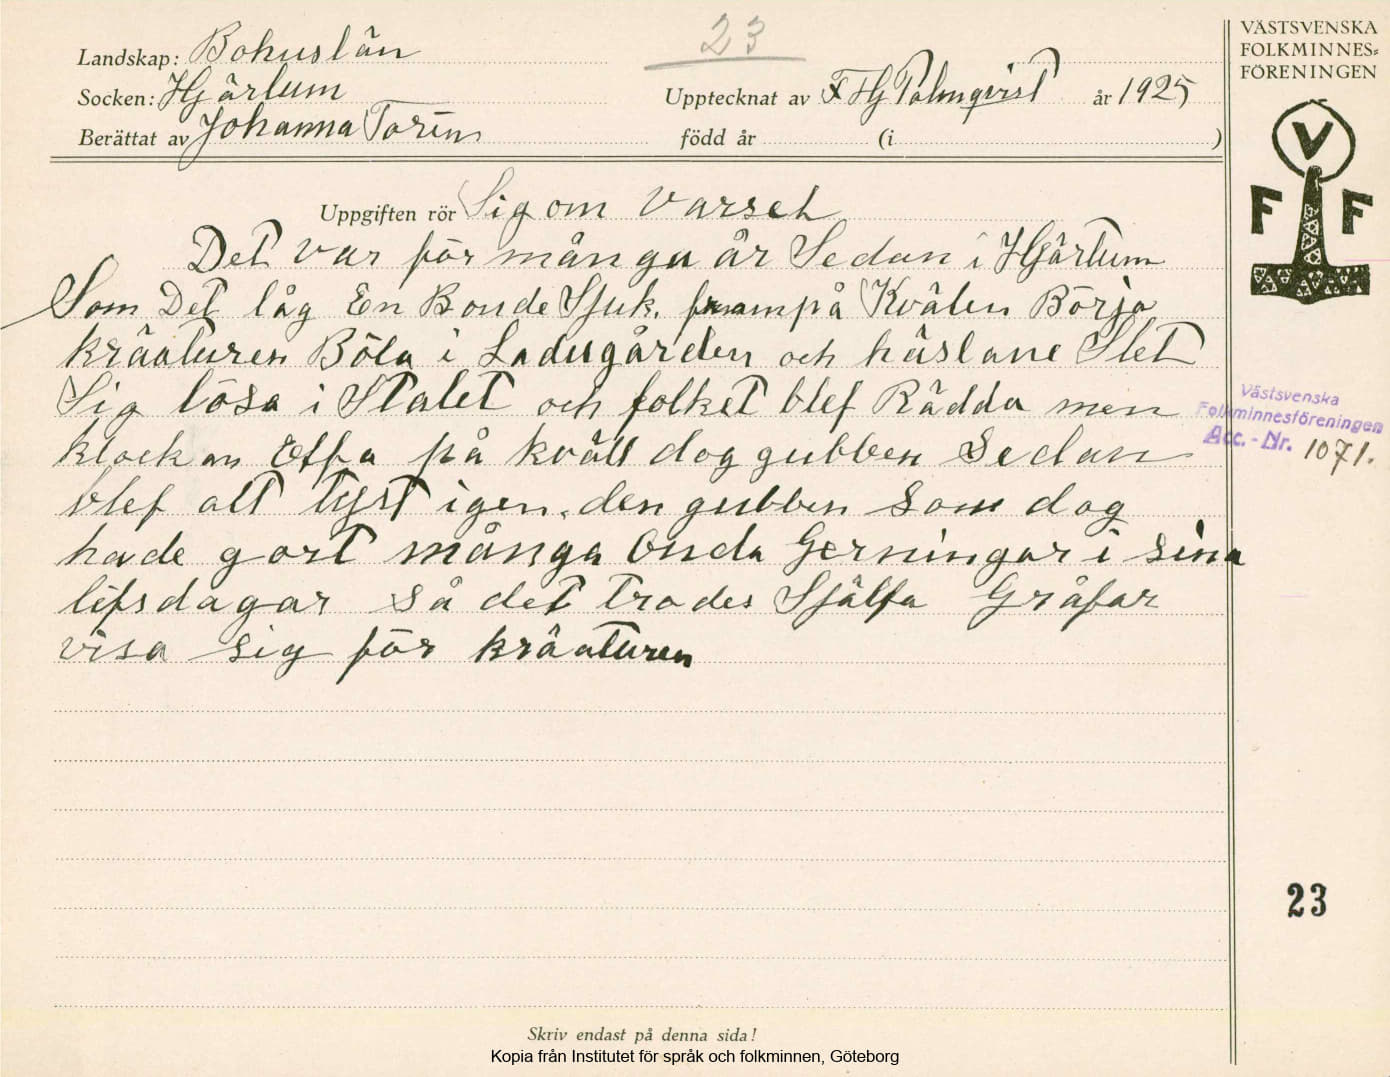 23
Landskap: Bohuslän
Socken: Hjärtum
Upptecknat av F Hj Palmqvist år 1925
Berättat av Johanna Torén
född år (i )
VÄSTSVENSKA
FOLKMINNES-
FÖRENINGEN
V
F F
Uppgiften rör Sig om Varsel
Det var för många år Sedan i Hjärtum
Som Det låg En Bonde Sjuk. frammpå Kvälen Börja
kräaturen Böla i Ladugården och häslane Slet
Sig lösa i Stalet och folket blef Rädda men
klockan Elfva på kväll dog gubben Sedan
blef alt tyst igen. den gubben som dog
hade gort många Onda Gerningar i sina
lifsdagar så det trodes Själfa Gråfar
visa sig för kräaturen
Västsvenska
Folkminnesföreningen
Acc. - Nr. 1071.
23
Skriv endast på denna sida!
Kopia från Institutet för språk och folkminnen, Göteborg